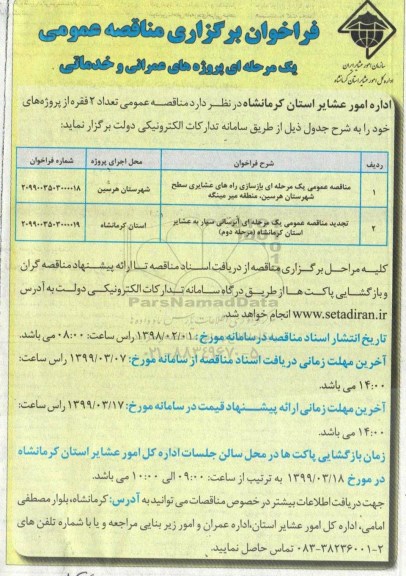 فراخوان برگزاری مناقصه عمومی
یک مرحله ای پروژه های عمرانی و خدماتی
سازمان امور عشایر ایران
اداره کل امور عشایر استان کرمانشاه
اداره امور عشایر استان کرمانشاه در نظر دارد مناقصه عمومی تعداد ۲ فقره از پروژه‌های
خود را به شرح جدول ذیل از طریق سامانه تدارکات الکترونیکی دولت برگزار نماید:
ردیف شرح فراخوان محل اجرای پروژه شماره فراخوان
۱ مناقصه عمومی یک مرحله ای بازسازی راه های عشایری سطح شهرستان هرسین هرسین، منطقه میر مینگه ۲۰۹۹۰۰۳۵۰۳۰۰۰۰۱۸
۲ تجدید مناقصه عمومی یک مرحله ای آبرسانی سیار به عشایر استان کرمانشاه ۲۰۹۹۰۰۳۵۰۳۰۰۰۰۱۹
استان کرمانشاه (مرحله دوم)
کلیه مراحل برگزاری مناقصه از دریافت اسناد مناقصه تا ارائه پیشنهاد مناقصه گران
و بازگشایی پاکت ها از طریق درگاه سامانه تدارکات الکترونیکی دولت به آدرس
www.setadiran.ir انجام خواهد شد.
ParsNamadData
تاریخ انتشار اسناد مناقصه در سامانه مورخ: ۱۳۹۸/۰۲/۰۱ راس ساعت: ۰۸:۰۰ می باشد.
آخرین مهلت زمانی دریافت اسناد مناقصه از سامانه مورخ: ۱۳۹۹/۰۳/۰۷ راس ساعت:
۱۴:۰۰ می باشد.
آخرین مهلت زمانی ارائه پیشنهاد قیمت در سامانه مورخ: ۱۳۹۹/۰۳/۱۷ راس ساعت:
۱۴:۰۰ می باشد.
زمان بازگشایی پاکت ها در محل سالن جلسات اداره کل امور عشایر استان کرمانشاه
در مورخ ۱۳۹۹/۰۳/۱۸ به ترتیب از ساعت: ۰۹:۰۰ الی ۱۰:۰۰ می باشد.
جهت دریافت اطلاعات بیشتر در خصوص مناقصات می توانید به آدرس: کرمانشاه، بلوار مصطفی
امامی، اداره کل امور عشایر استان، اداره عمران و امور زیر بنایی مراجعه و یا با شماره تلفن های
۰۸۳-۳۸۲۳۶۰۰۱-۲ تماس حاصل نمایید.